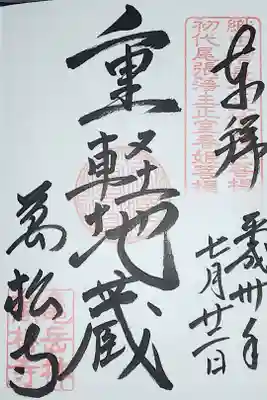 奉拝
初代尾張藩主正室春姫菩提
平成卅年
七月廿一日
重軽地蔵
萬松寺
亀岳林
萬松寺